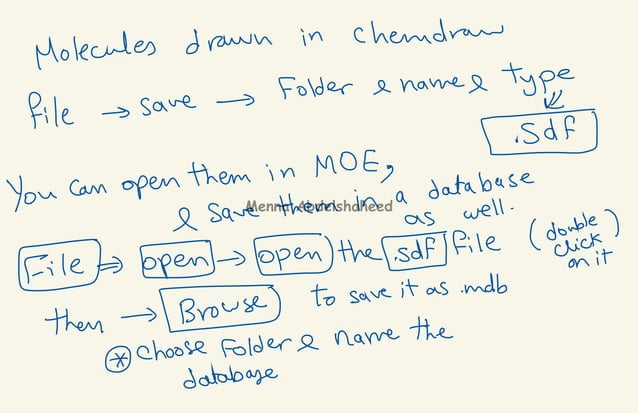 Molecules drawn in chemdraw
file → save → Folder & name & type
.sdf
You can open them in MOE,
& save them in a database
as well.
File ⇒ open → open the .sdf file (double click on it)
then → Browse to save it as .mdb
* choose Folder & name the
database